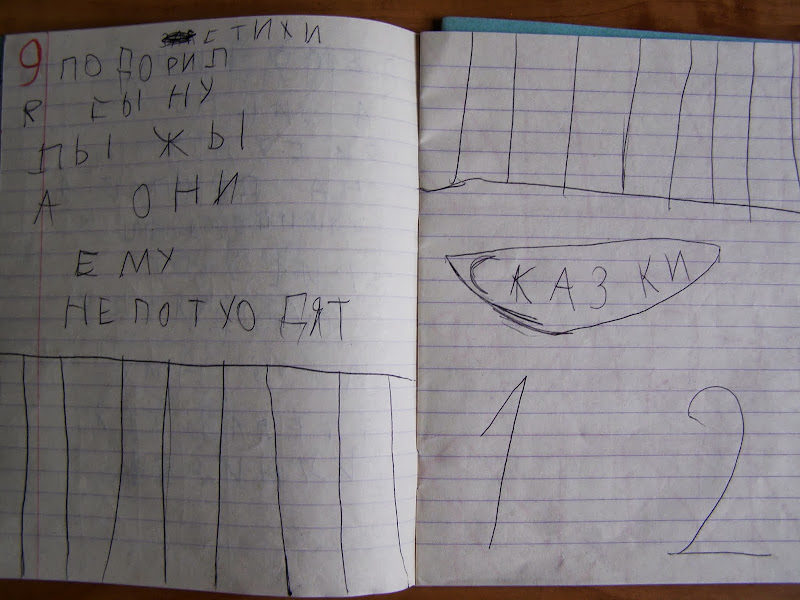 СТИХИ
9 ПОДОРИЛ
Я СЫНУ
ЛЫЖЫ
А ОНИ
ЕМУ
НЕ ПОТУОДЯТ
СКАЗКИ
1 2